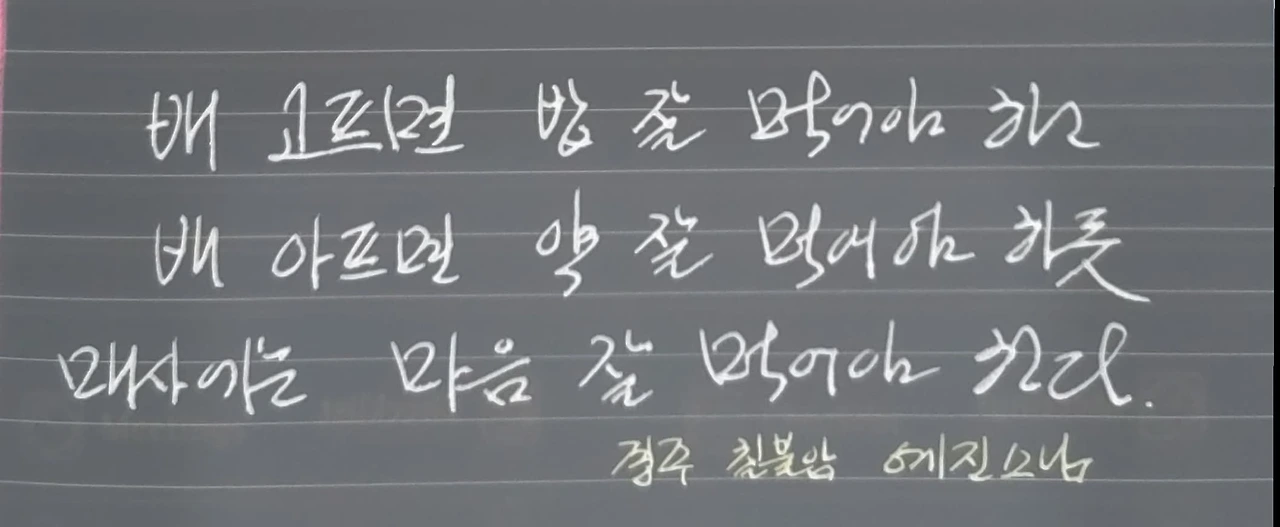 배 고프면 밥 잘 먹어야 하고
배 아프면 약 잘 먹어야 하듯
매사에는 마음 잘 먹어야 한다.
경주 칠불암 예진스님